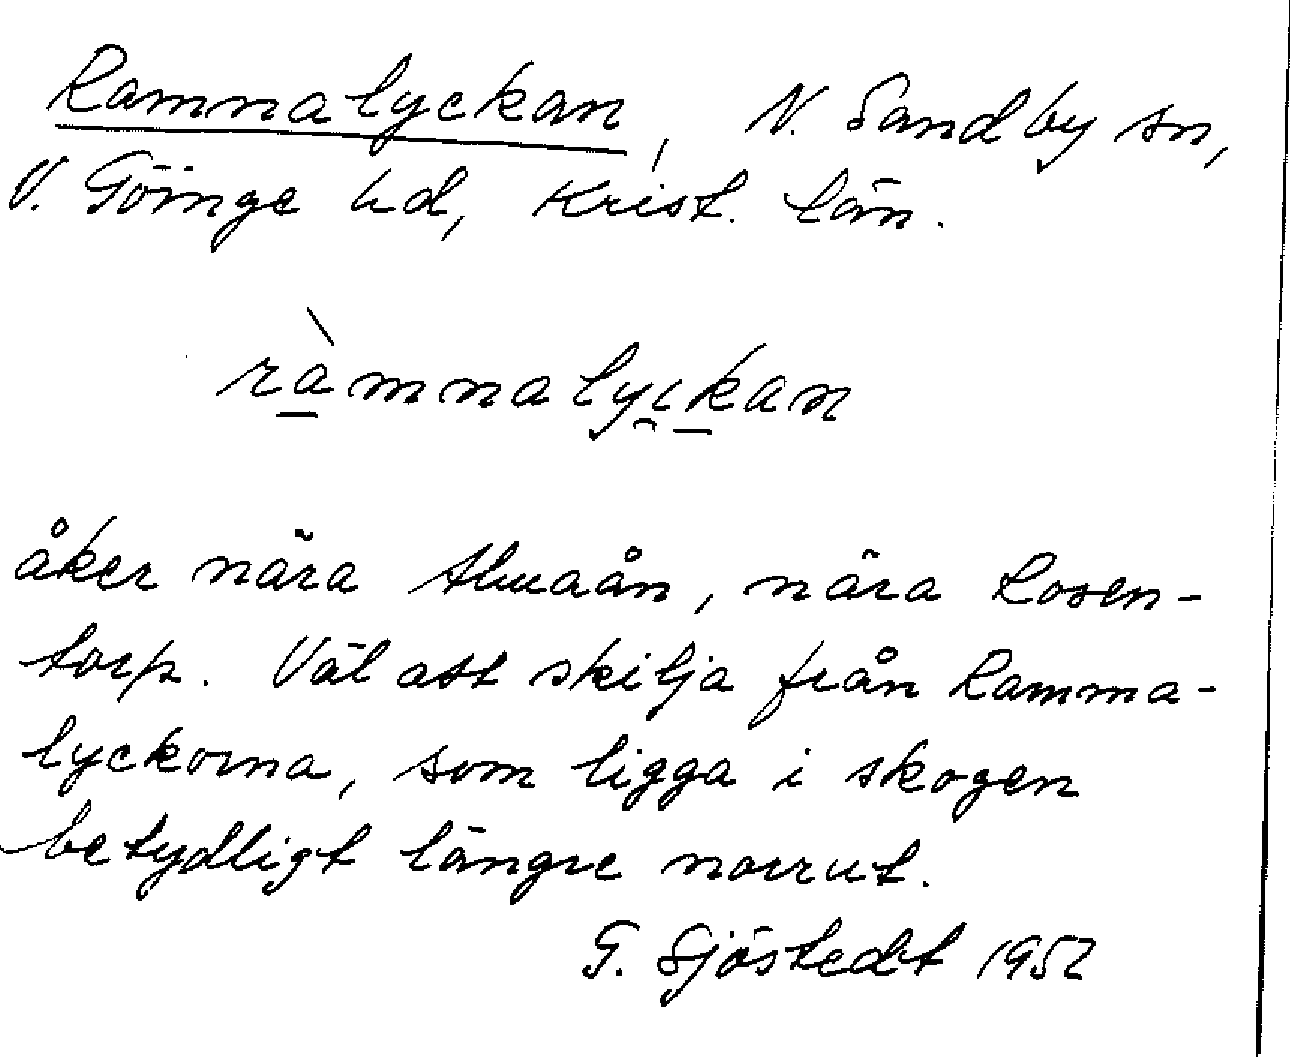 Ramnalyckan, N. Sandby sn,
V. Göinge hd, Krist. län.
ràmnalyckan
åker nära Almaån, nära Rosen-
torp. Väl att skilja från Ramma-
lyckorna, som ligga i skogen
betydligt längre norrut.
G. Sjöstedt 1952